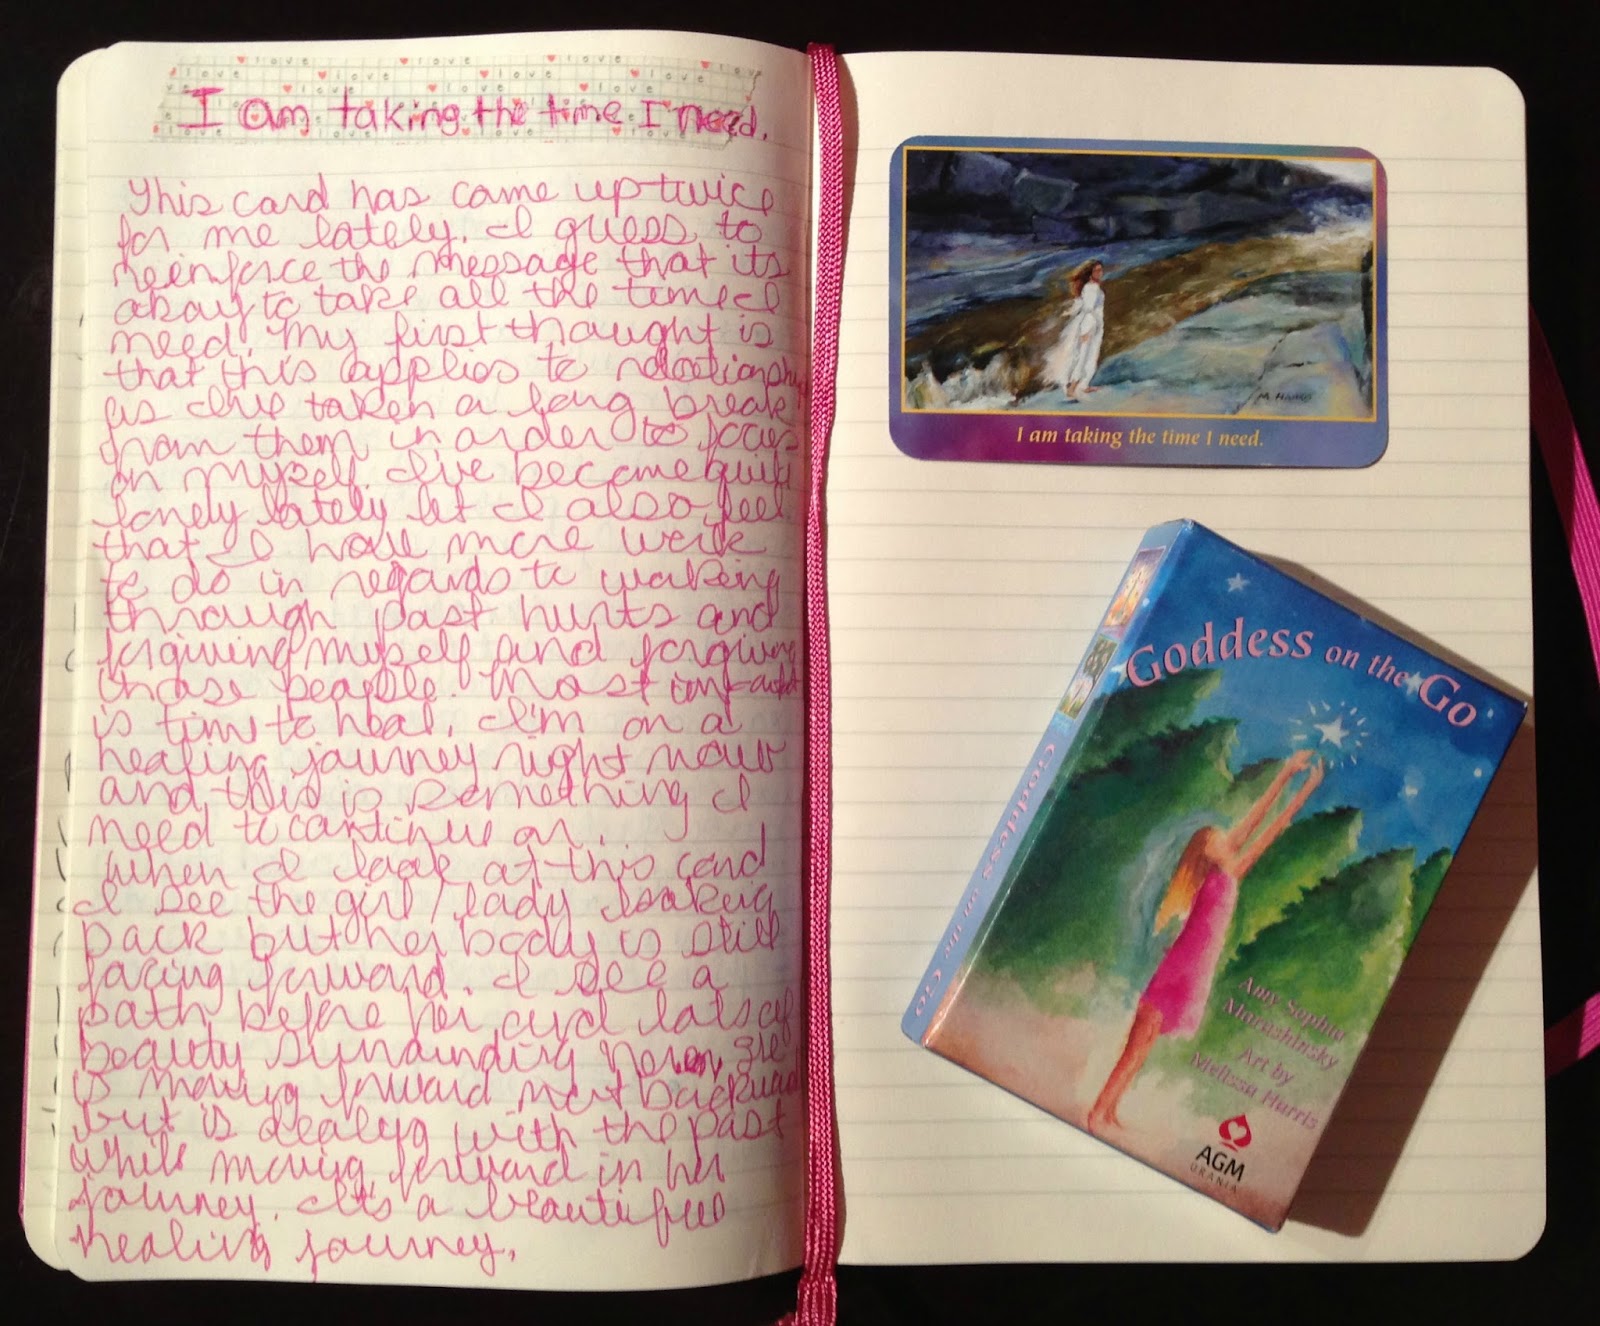 I am taking the time I need.
This card has come up twice
for me lately. I guess to
reinforce the message that its
okay to take all the time I
need. My first thought is
that this applies to relationships
as I've taken a long break
from them in order to focus
on myself. I've become quite
lonely lately yet I also feel
that I have more work
to do in regards to working
through past hurts and
forgiving myself and forgiving
those people. Most important
is time to heal. I'm on a
healing journey right now
and this is something I
need to continue on.
When I look at this card
I see the girl/lady looking
back but her body is still
facing forward. I see a
path before her and lots of
beauty surrounding her. She
is moving forward not backward
but is dealing with the past
while moving forward in her
journey. It's a beautiful
healing journey.
M. HARRIS
I am taking the time I need.
GODDESS on the GO
GODDESS on the GO
Amy Sophia
Marashinsky
Art by
Melissa Harris
AGM
URANIA